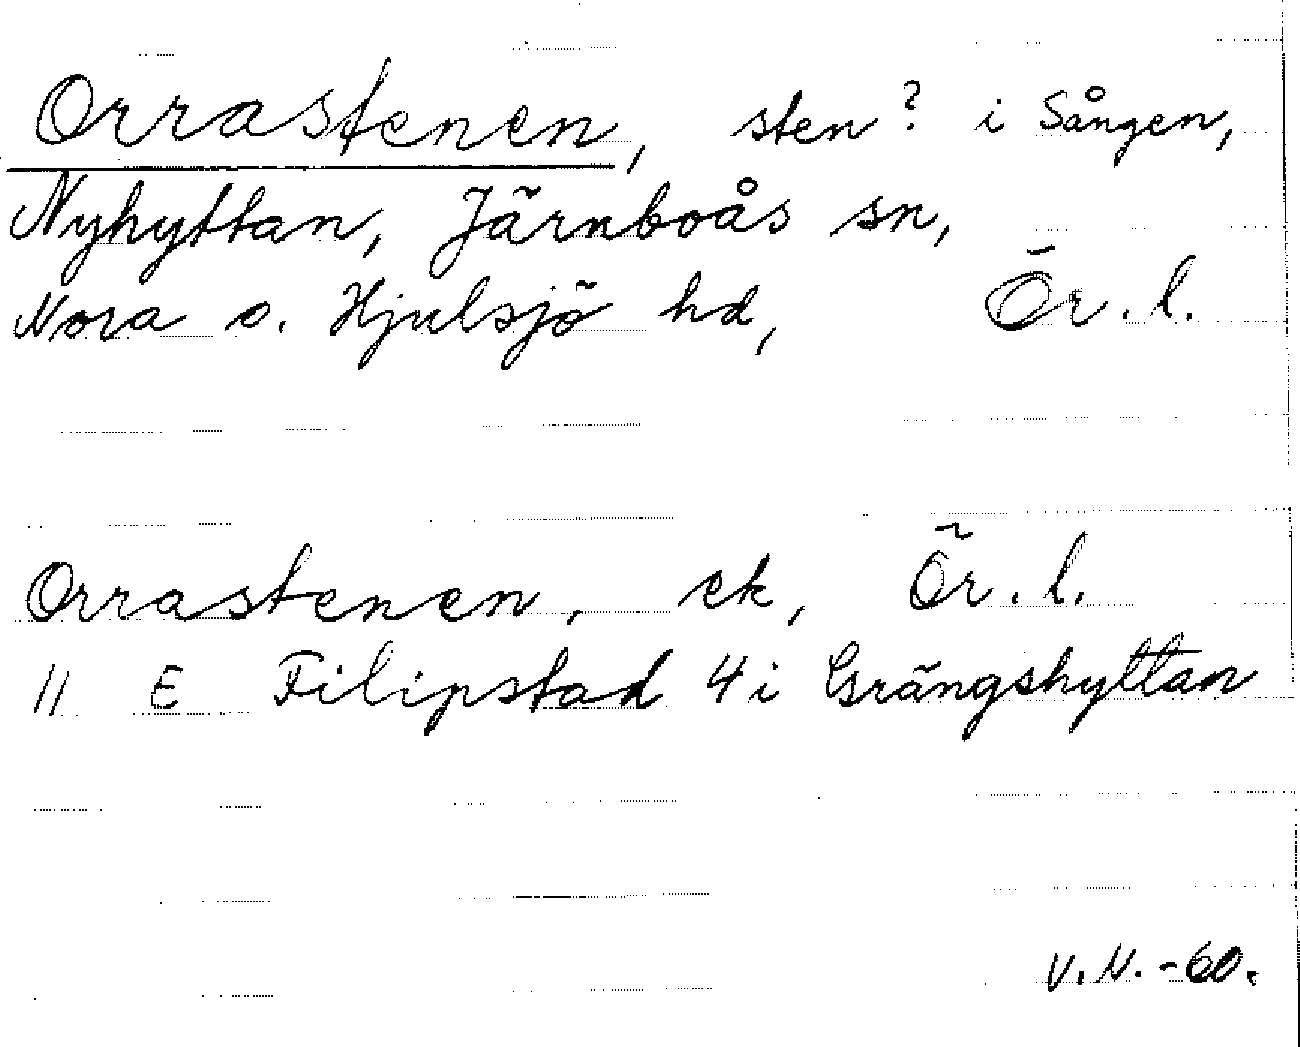 Orrastenen, sten? i Sången,
Nyhyttan, Järnboås sn,
Nora o. Hjulsjö hd, Ör. l.
Orrastenen, ek, Ör. l.
11 E Filipstad 4 i Grängshyttan
V.N.-60.